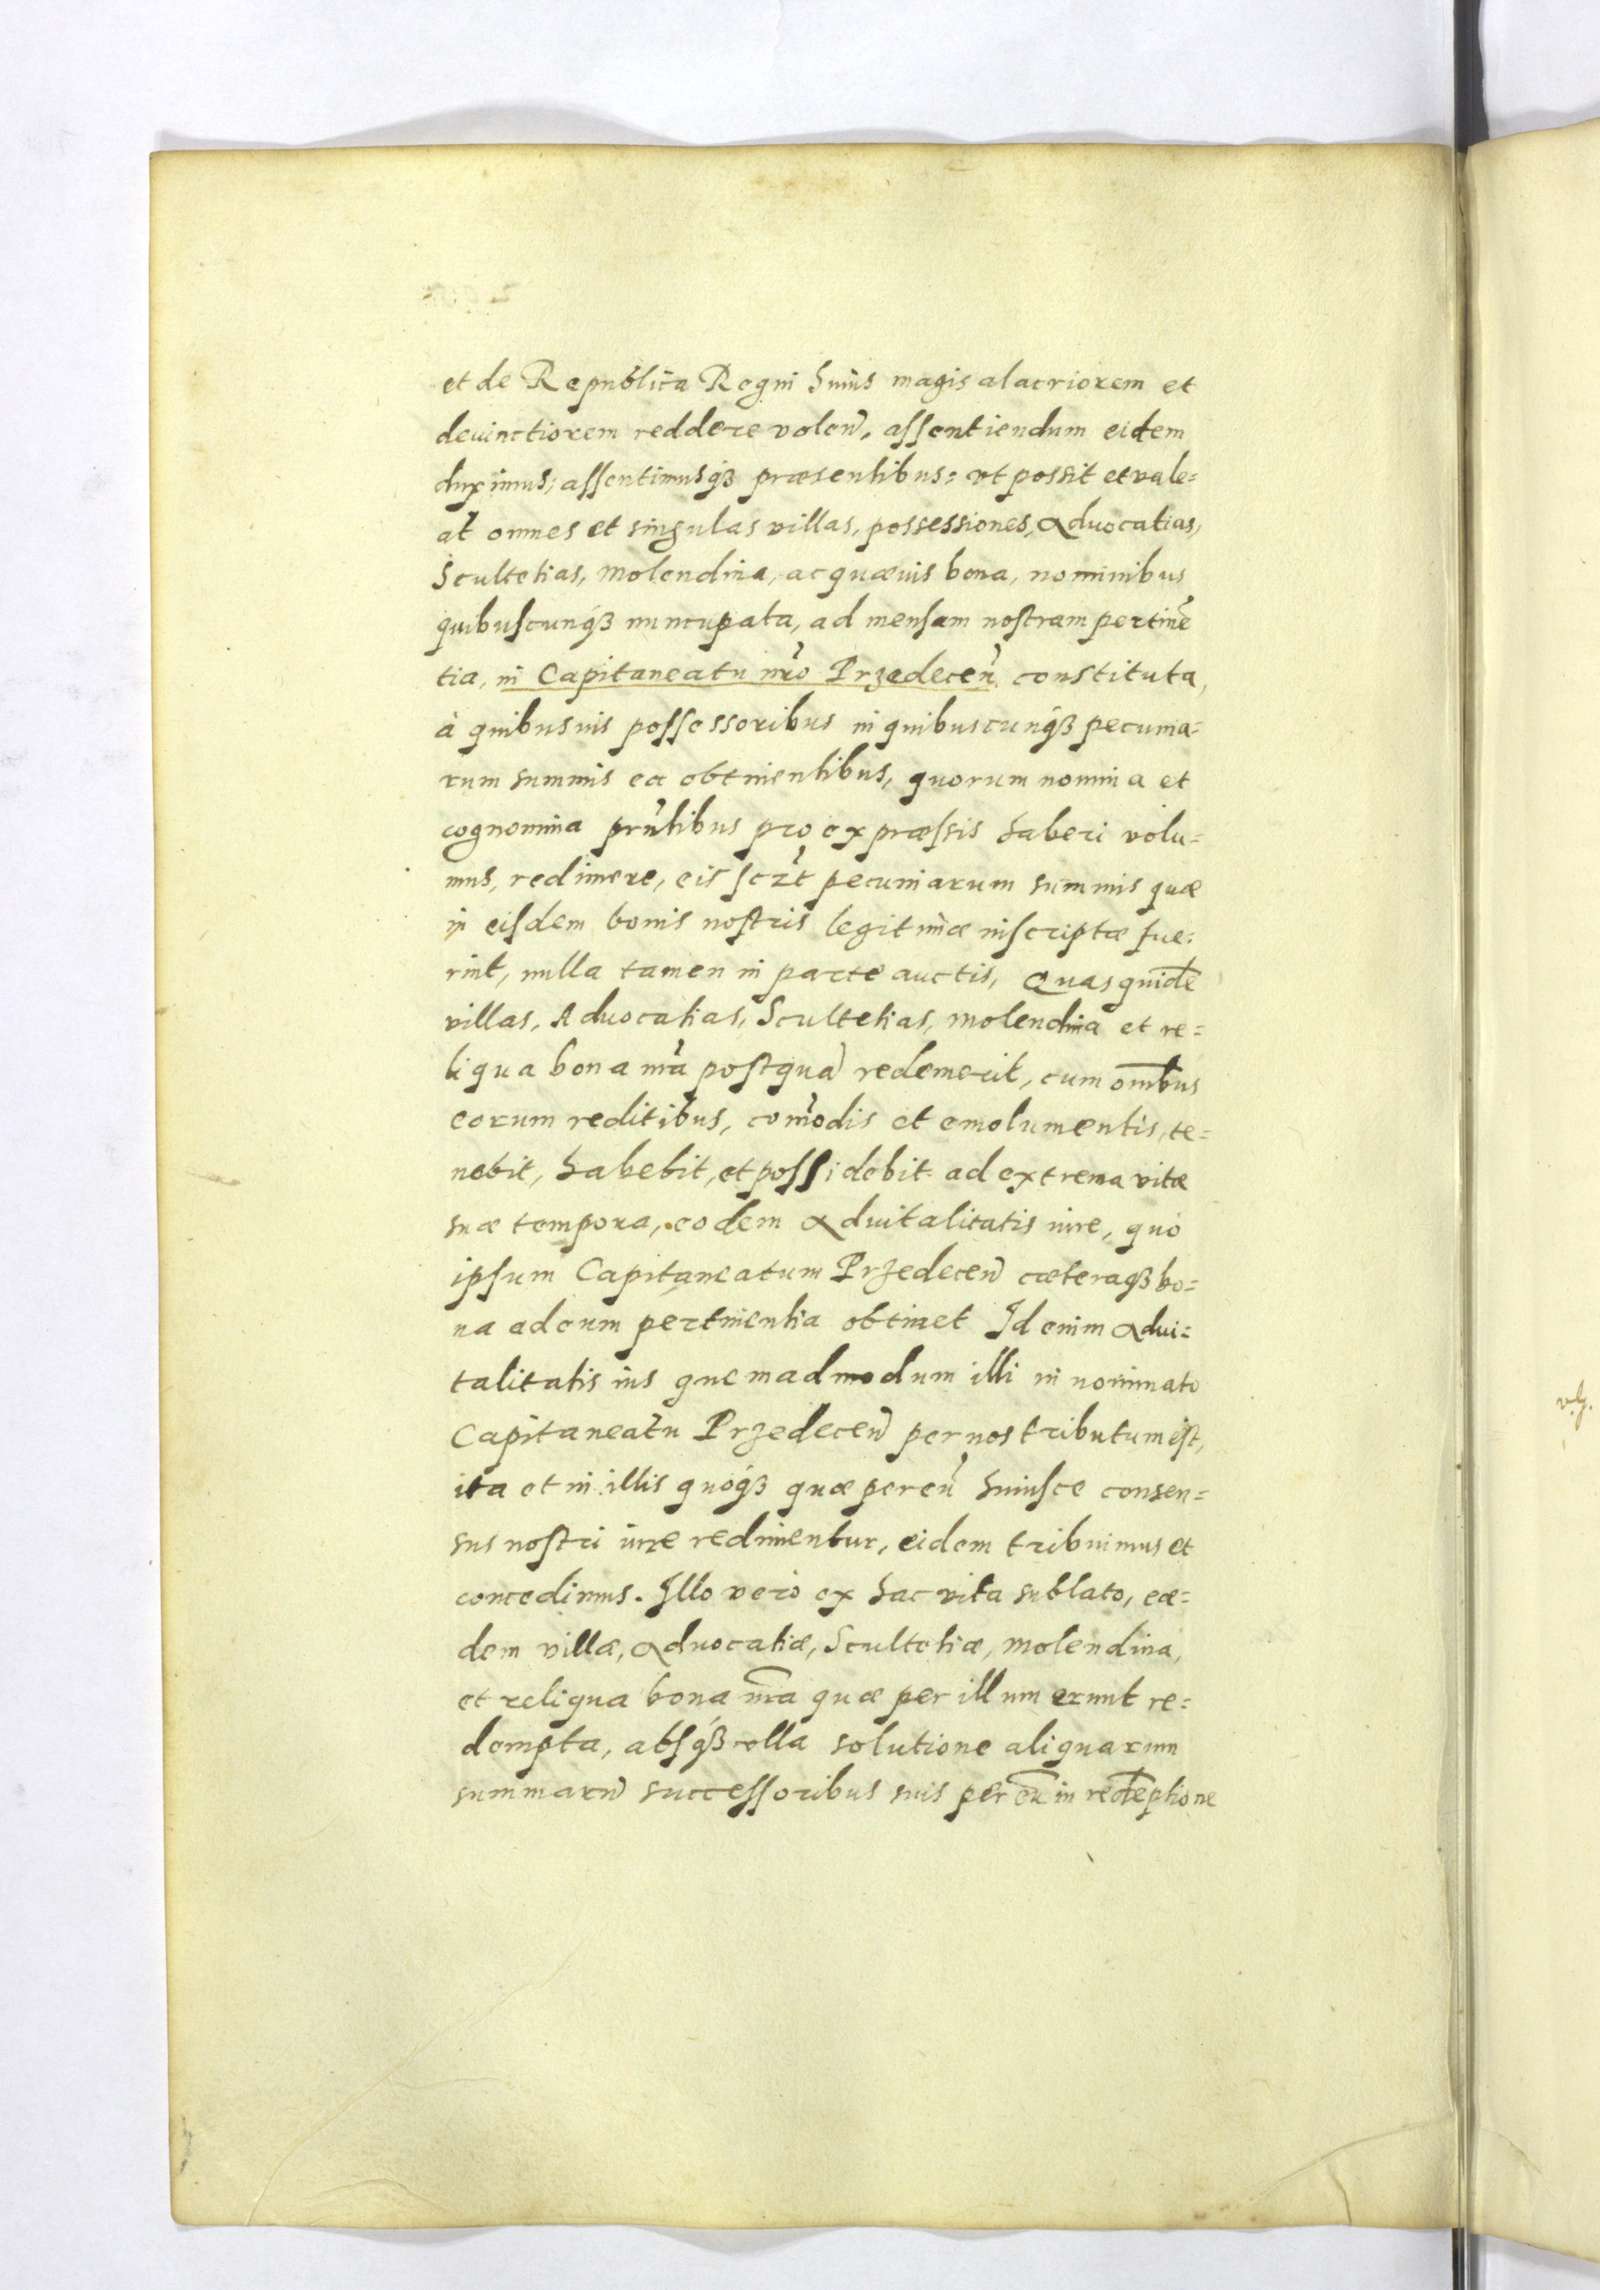 et de Republica Regni huius magis alacriorem et
deuinctiorem reddere volen̄, assentiendum eidem
duximus, assentimusqȝ præsentibus: vt possit et vale=
at omnes et singulas villas, possessiones, Aduocatias,
Scultetias, molendina, ac quæuis bona, nominibus
quibuscunqȝ nuncupata, ad mensam nostram pertinē
tia, in Capitaneatu nr̄o Przedecen̄ constituta,
à quibusuis possessoribus in quibuscunqȝ pecunia=
rum summis ea obtinentibus, quorum nomina et
cognomina prn̄tibus pro expræssis haberi volu=
mus, redimere, eis sczt̄ pecuniarum summis quæ
in eisdem bonis nostris legitimæ inscriptæ fue=
rint, nulla tamen in parte auctis, Quas quidē
villas, Aduocatias, Scultetias, molendina et re=
liqua bona nr̄a postquā redemerit, cum omībus
eorum reditibus, com̄odis et emolumentis, te=
nebit, habebit, et possidebit ad extrema vitæ
suæ tempora, eodem Aduitalitatis iure, quo
ipsum Capitaneatum Przedecen̄ cæteraqȝ bo=
na ad eum pertinentia obtinet Id enim Adui=
talitatis ius quemadmodum illi in nominato
Capitaneatu Przedecen̄ per nos tributum est,
ita et in illis quoqȝ quæ per eū huiusce consen=
sus nostri iure redimentur, eidem tribuimus et
concedimus. Illo vero ex hac vita sublato, eæ=
dem villæ, Aduocatiæ, Scultetiæ, molendina,
et reliqua bona nr̄a quæ per illum erunt re=
dempta, absqȝ vlla solutione aliquarum
summarū successoribus suis per eū in redēptione
v. g.